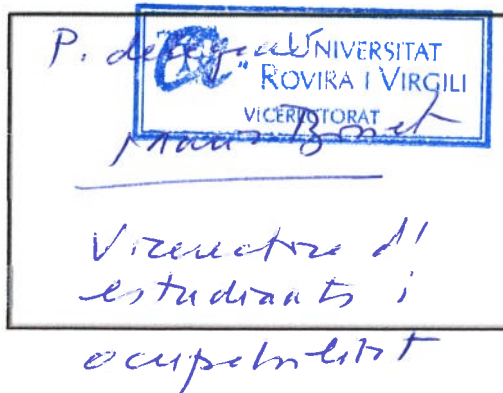 P. delegació
UNIVERSITAT
ROVIRA I VIRGILI
VICERECTORAT
Bonet
Vicerectora d'
estudiants i
ocupabilitat